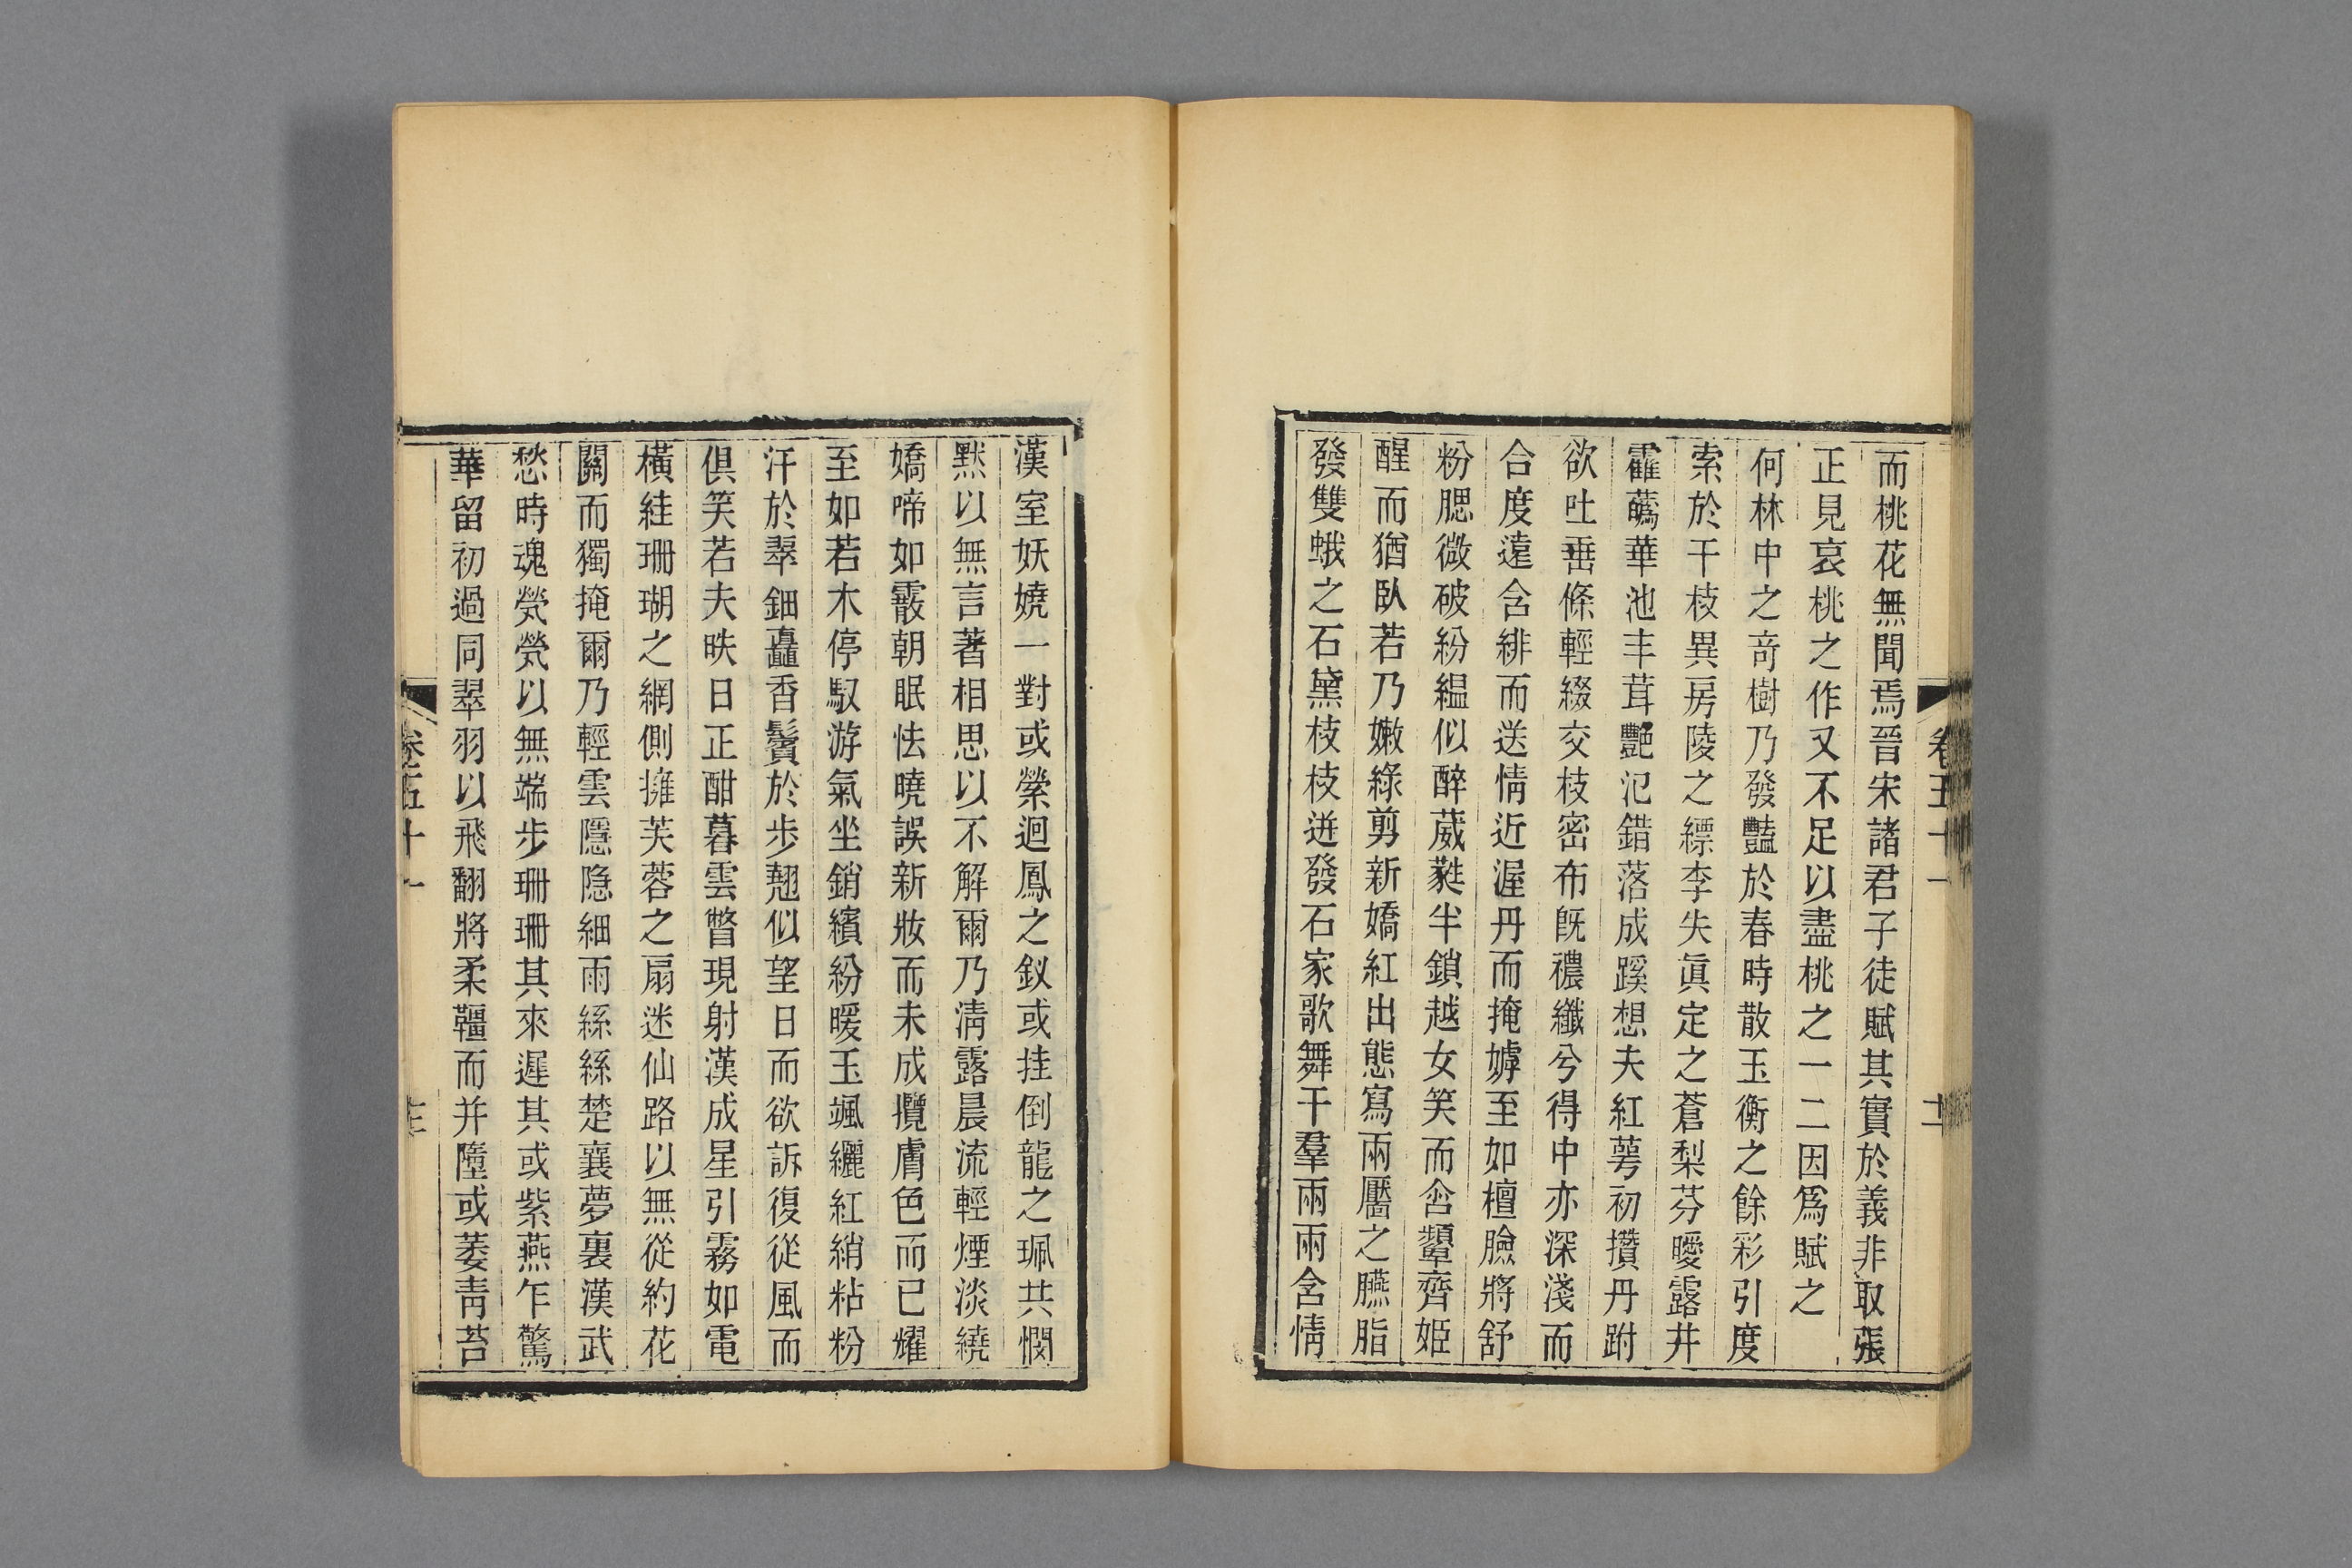 卷五十一
十二
而桃花無聞焉晉宋諸君子徒賦其實於義非取張
正見哀桃之作又不足以盡桃之一二因爲賦之
何林中之奇樹乃發豔於春時散玉衡之餘彩引度
索於千枝異房陵之縹李失眞定之蒼梨芬曖露井
霍蘼華池丰茸艷汜錯落成蹊想夫紅萼初攢丹跗
欲吐垂條輕綴交枝密布旣穠纖兮得中亦深淺而
合度遠含緋而送情近渥丹而掩嫭至如檀臉將舒
粉腮微破紛縕似醉葳蕤半鎖越女笑而含顰齊姬
醒而猶臥若乃嫩綠剪新嬌紅出態寫兩靨之臙脂
發雙蛾之石黛枝枝迸發石家歌舞千羣兩兩含情
漢室妖嬈一對或縈迴鳳之釵或挂倒龍之珮共憫
默以無言著相思以不解爾乃淸露晨流輕煙淡繞
嬌啼如霰朝眠怯曉誤新妝而未成攬膚色而已耀
至如若木停馭游氣坐銷繽紛暖玉颯纚紅綃粘粉
汗於翠鈿矗香鬢於步翹似望日而欲訴復從風而
俱笑若夫昳日正酣暮雲瞥現射漢成星引霧如電
橫絓珊瑚之網側擁芙蓉之扇迷仙路以無從約花
關而獨掩爾乃輕雲隱隐細雨絲絲楚襄夢裏漢武
愁時魂煢煢以無端步珊珊其來遲其或紫燕乍驚
華留初過同翠羽以飛翻將柔韁而并墮或萎靑苔
卷五十一
十三